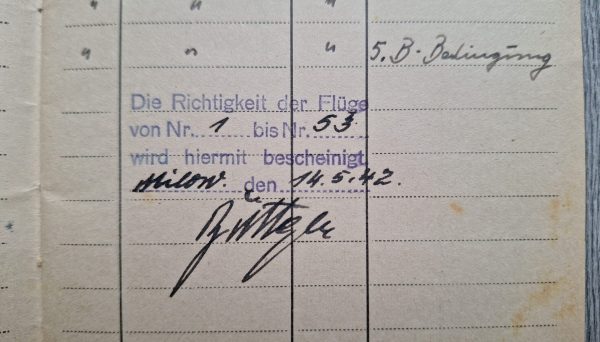 " " "
" " " 5. B-Bedingung
Die Richtigkeit der Flüge
von Nr. 1 bis Nr. 53
wird hiermit bescheinigt.
Milow. den 14.5.42.
Böttger